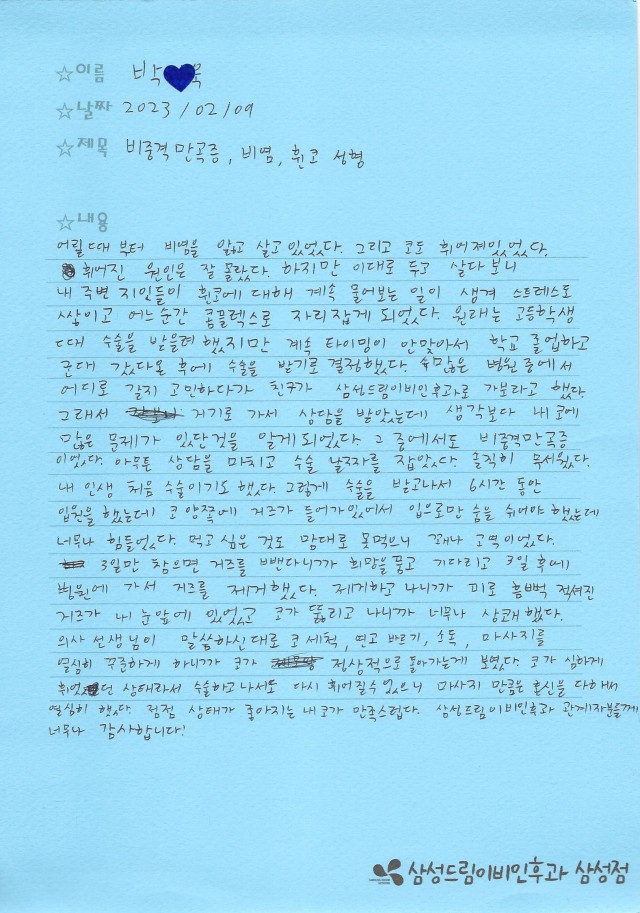 ☆이름 박♥욱
☆날짜 2023/02/09
☆제목 비중격만곡증, 비염, 휜코 성형
☆내용
어릴때부터 비염을 앓고 살고있었다. 그리고 코도 휘어져있었다.
휘어진 원인은 잘 몰랐다. 하지만 이대로 두고 살다보니
내 주변 지인들이 휜코에 대해 계속 물어보는 일이 생겨 스트레스도
쌓이고 어느순간 콤플렉스로 자리잡게 되었다. 원래는 고등학생
때 수술을 받을려했지만 계속 타이밍이 안맞아서 학교 졸업하고
군대 갔다온 후에 수술을 받기로 결정했다. 수많은 병원 중에서
어디로 갈지 고민하다가 친구가 삼성드림이비인후과로 가보라고 했다.
그래서 거기로 가서 상담을 받았는데 생각보다 내 코에
많은 문제가 있단것을 알게되었다. 그 중에서도 비중격만곡증
이었다. 아무튼 상담을 마치고 수술 날짜를 잡았다. 솔직히 무서웠다.
내 인생 처음 수술이기도 했다. 그렇게 수술을 받고나서 6시간 동안
입원을 했는데 코 양쪽에 거즈가 들어가있어서 입으로만 숨을 쉬어야 했는데
너무나 힘들었다. 먹고 싶은 것도 맘대로 못먹으니 꽤나 고역이었다.
3일만 참으면 거즈를 뺀다니까 희망을 품고 기다리고 3일 후에
병원에 가서 거즈를 제거했다. 제거하고 나니까 피로 흠뻑 적셔진
거즈가 내 눈앞에 있었고 코가 뚫리고 나니까 너무나 상쾌했다.
의사 선생님이 말씀하신대로 코세척, 연고 바르기, 소독, 마사지를
열심히 꾸준하게 하니까 코가 정상적으로 돌아가는게 보였다. 코가 심하게
휘었던 상태라서 수술하고 나서도 다시 휘어질수있으니 마사지 만큼은 혼신을 다해서
열심히 했다. 점점 상태가 좋아지는 내코가 만족스럽다. 삼성드림이비인후과 관계자분들께
너무나 감사합니다!
삼성드림이비인후과 삼성점